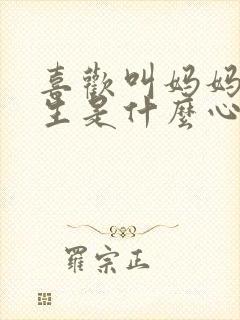 喜歡叫妈妈
生是什麼心
羅宗正